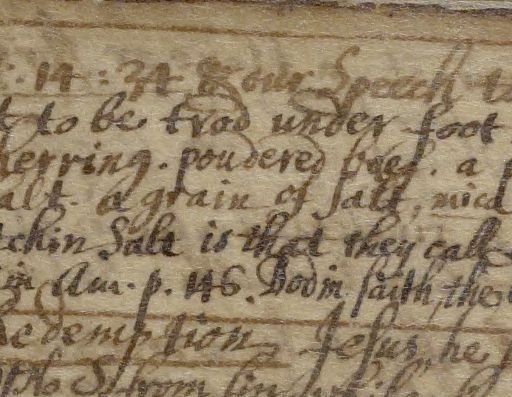 : 14 : 34 & our Speech
to be trod under foot
herring. poudered beef. a
alt. a grain of salt, mica
tchin Salt is that they call
in Am. p. 146. Bodin saith, the
Redemption Jesus, he
from sin